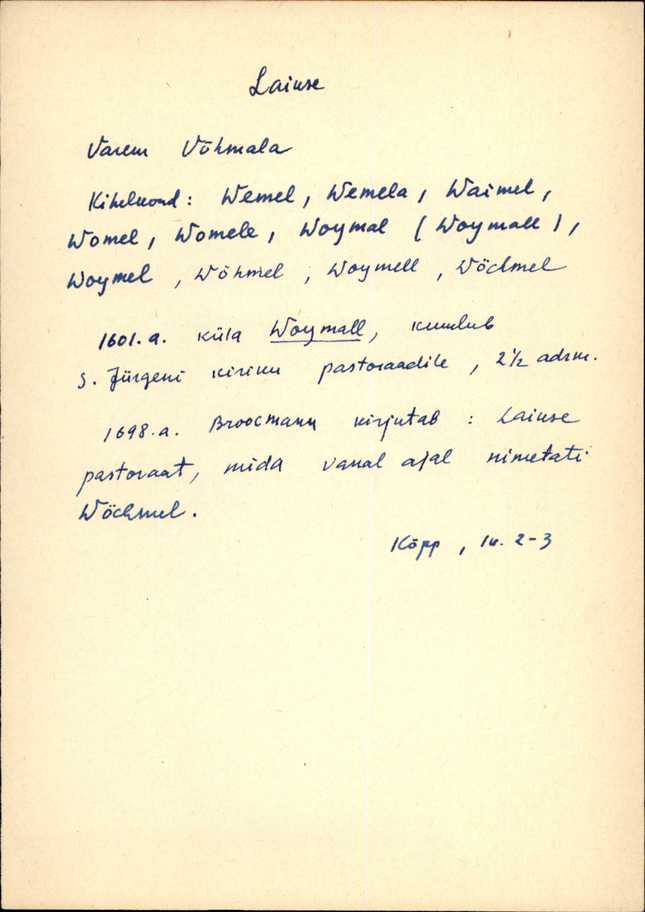 Laiuse
Varem Võhmala
Kihelkond: Wemel, Wemela, Waimel,
Womel, Womele, Woymal (Woymall),
Woymel, Wöhmel, Woymell, Wöchmel
1601.a. küla Woymall, kuulub
S. Jürgeni kiriku pastoraadile, 2 1/2 adrm.
1698.a. Broocmann kirjutab: Laiuse
pastoraat, mida vanal ajal nimetati
Wöchmel.
Kõpp, lk. 2-3